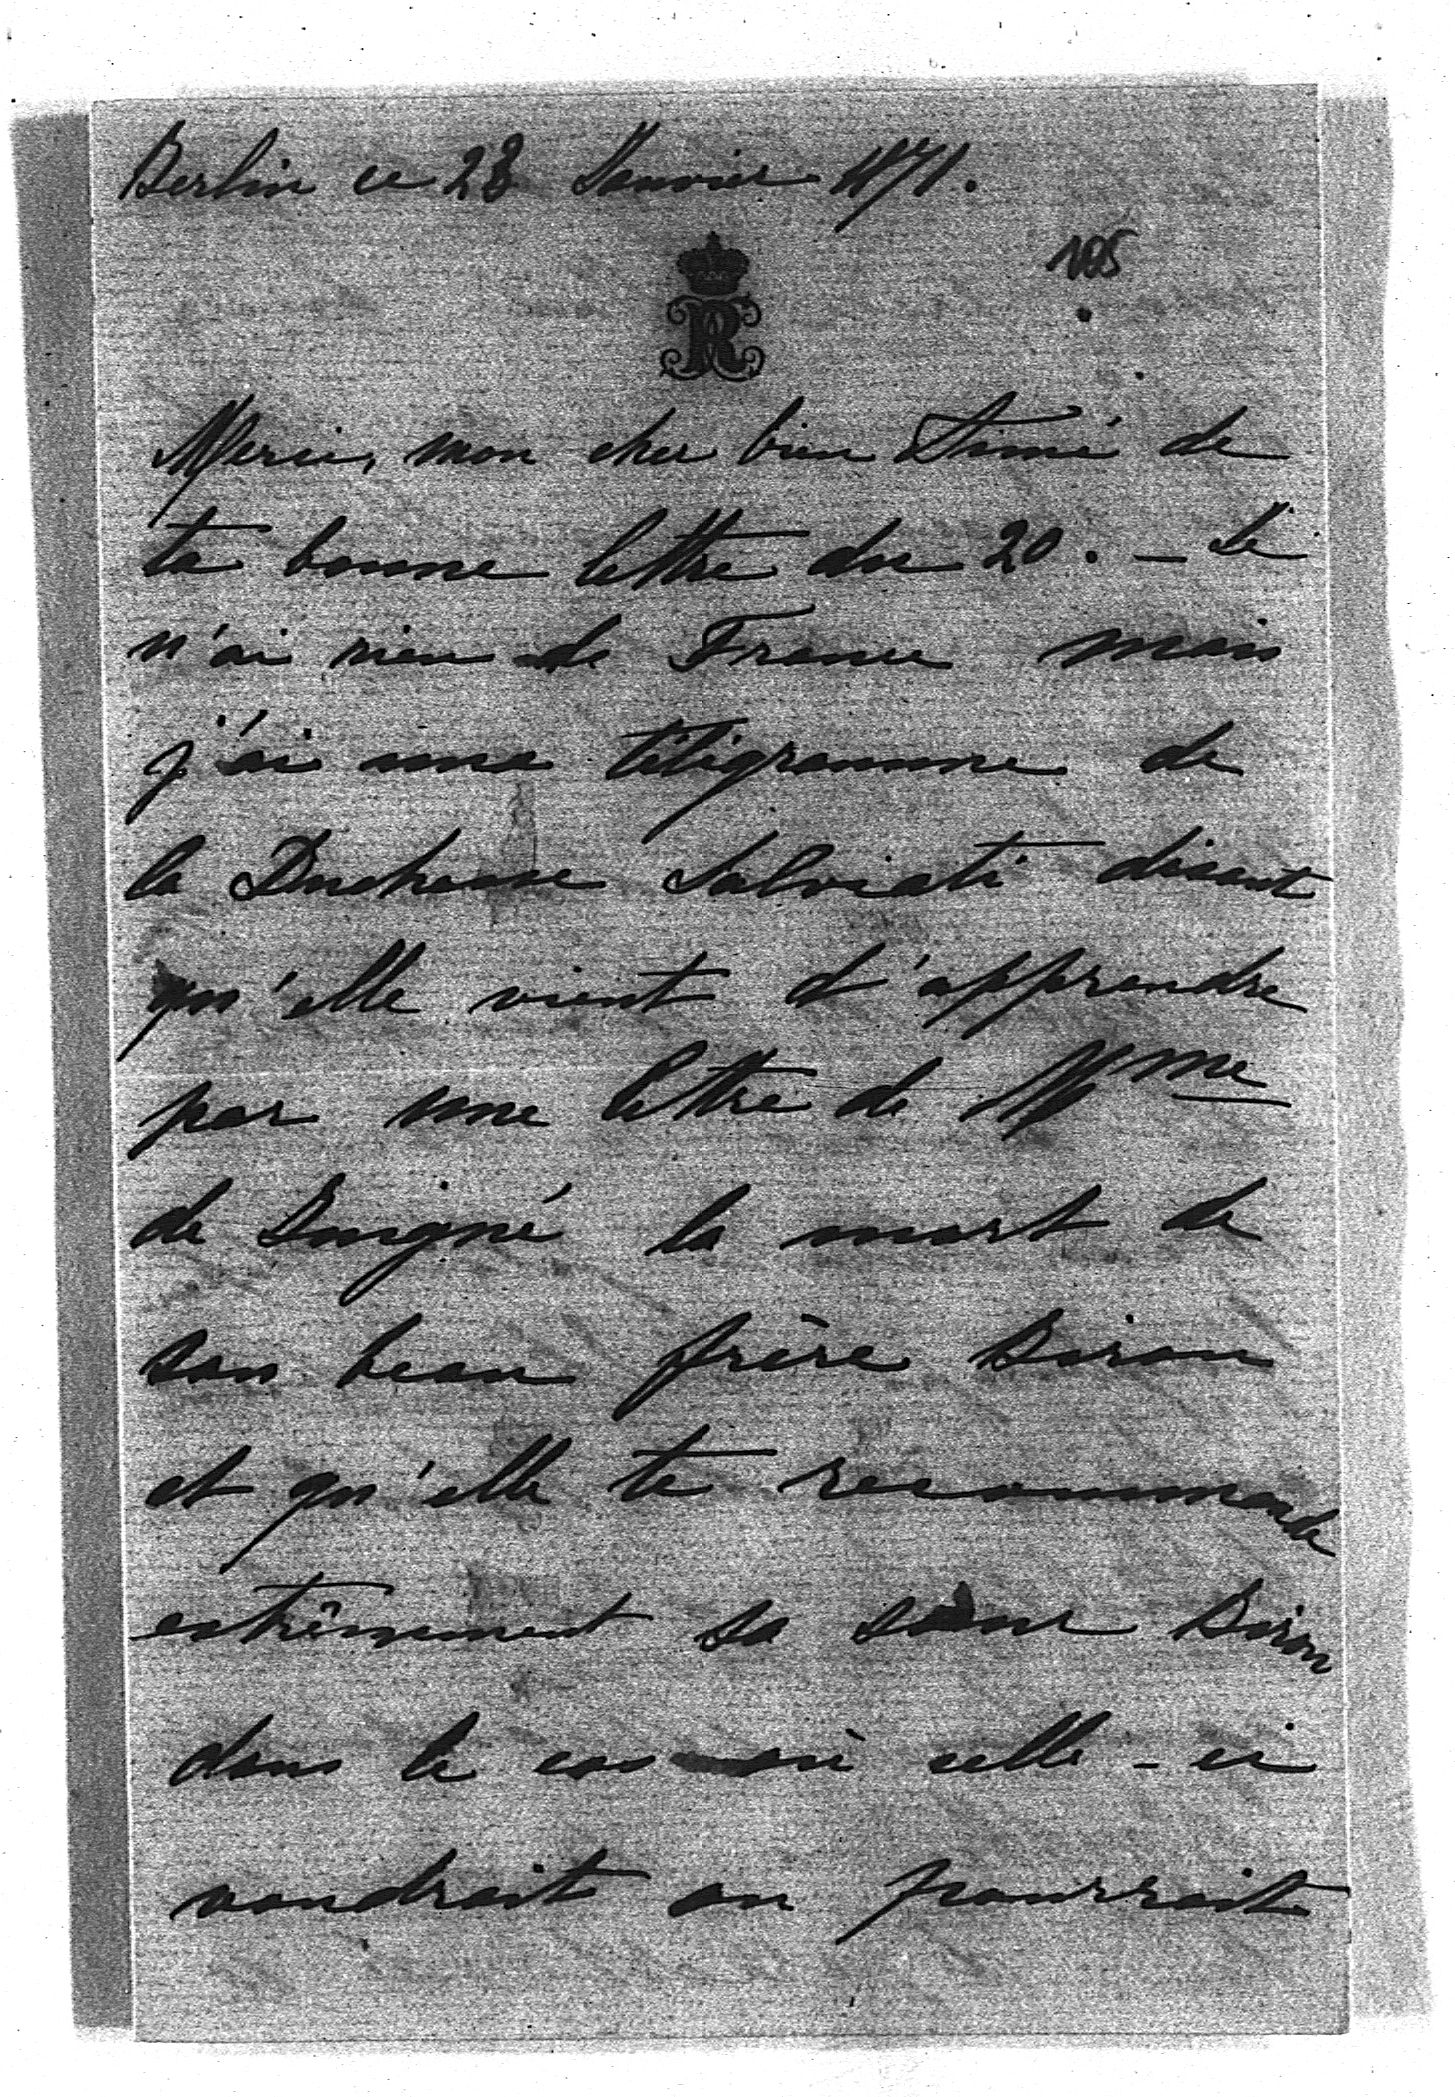 Berlin ce 23 Janvier 1871.
105
R
Merci, mon cher bien Aimé de
ta bonne lettre du 20. — Je
n'ai rien de France mais
j'ai une télégramme de
la Duchesse Salviati disant
qu'elle vient d'apprendre
par une lettre de Mme
de la mort de
son beau frère Biron
et qu'elle te recommande
extrêmement sa sœur Biron
dans le cas où celle-ci
voudrait ou pourrait